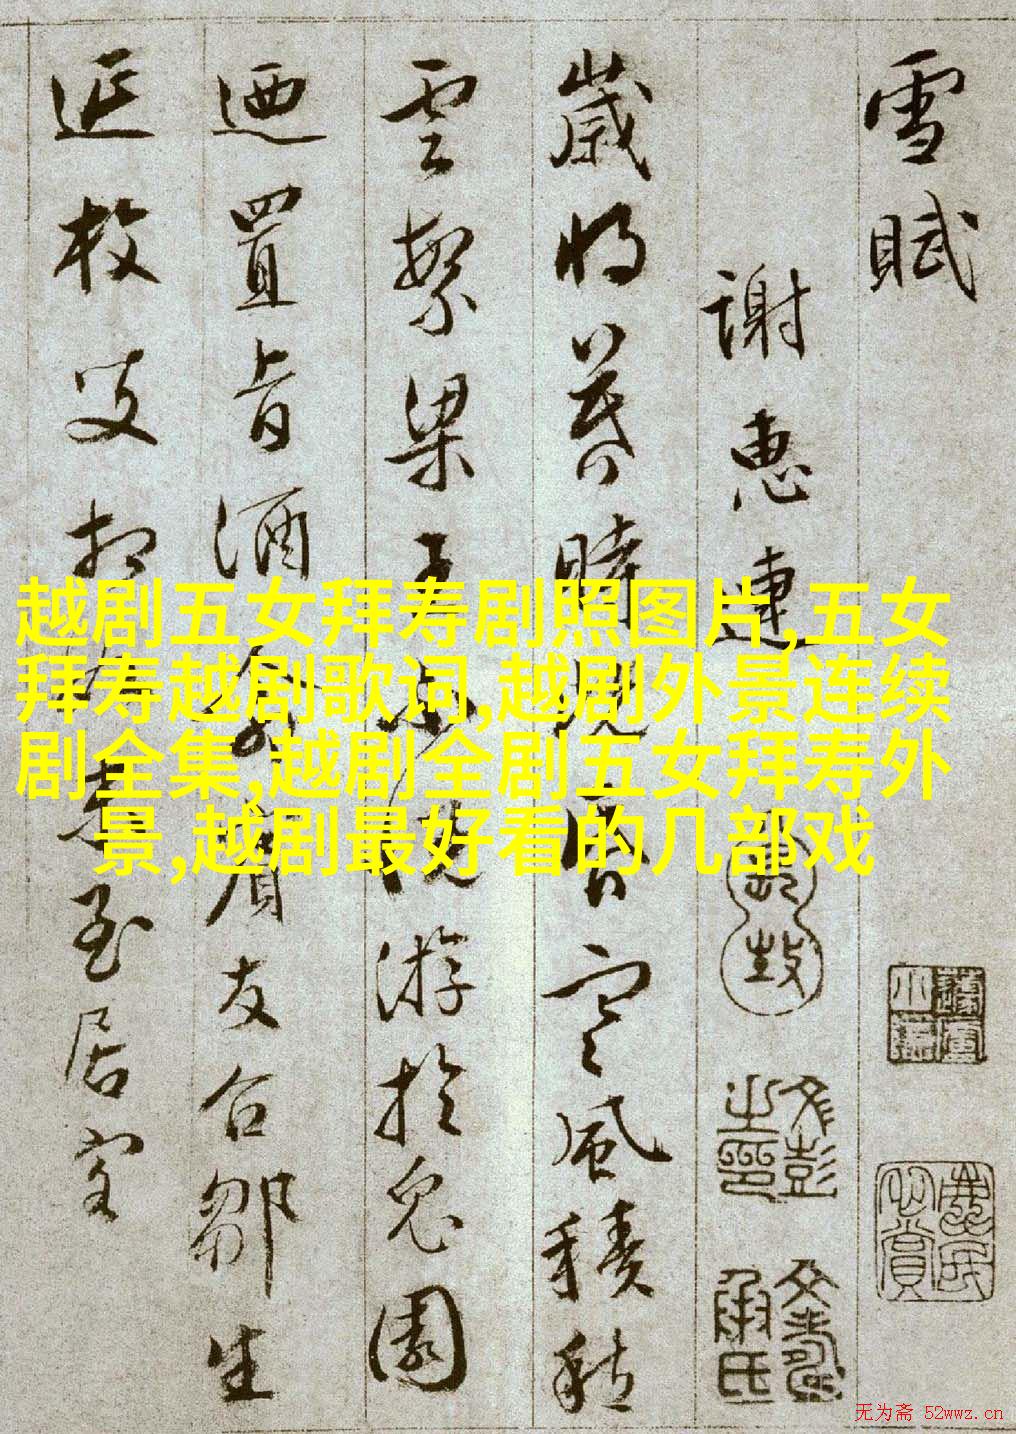 雪賦
謝惠連
歲將暮時既昏寒風積
雲繁梁王不悅游於兔園
迺置旨酒命賓友召鄒生
延枚叟相如末至居客
越剧五女拜寿剧照图片,五女
拜寿越剧歌词,越剧外景连续
剧全集,越剧全剧五女拜寿外
景,越剧最好看的几部戏
文彭之印
文壽承氏
无为斋 52wwz.cn